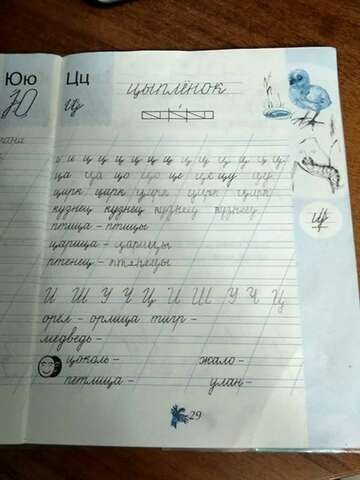 Юю Цц цыплёнок
Ю ц
и и ц ц ц ц ц ц ц ц ц ц ц ц
ца ца цо цо це це цу цу
цирк цирк цирк цирк цирк
кузнец кузнец кузнец кузнец
птица - птицы
царица - царицы
птенец - птенецы
И Ш У Ч Ц И Ш У Ч Ц
орел - орлица тигр -
медведь -
цоколь - жало -
петлица - улан -
29